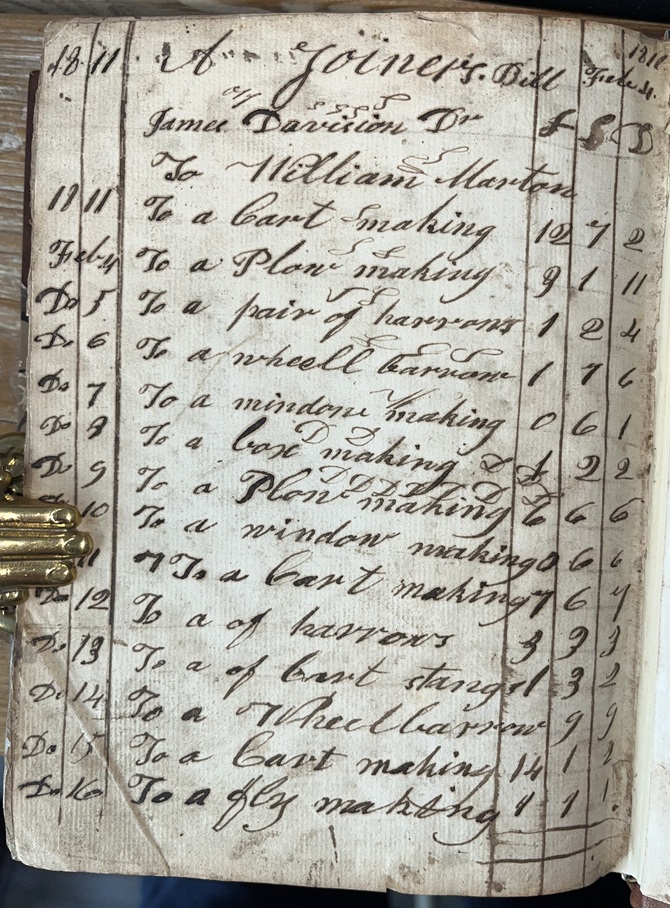 1811 A Joiners Bill 1811 Feb 4.
James Davision Dr £ S D
To William Marton
1811 To a Cart making 12 7 2
Feb 4 To a Plow making 9 1 11
Do 5 To a pair of harrows 1 2 4
Do 6 To a wheell barrow 1 7 6
Do 7 To a window making 0 6 1
Do 8 To a box making 1 2 2
Do 9 To a Plow making 6 6 6
10 To a window making 0 6 6
11 To a Cart making 7 6 7
Do 12 To a of harrows 3 3 3
Do 13 To a of Cart stangs 1 3 2
Do 14 To a Wheelbarrow 9 9
Do 15 To a Cart making 14 1 2
Do 16 To a fly making 1 1 1